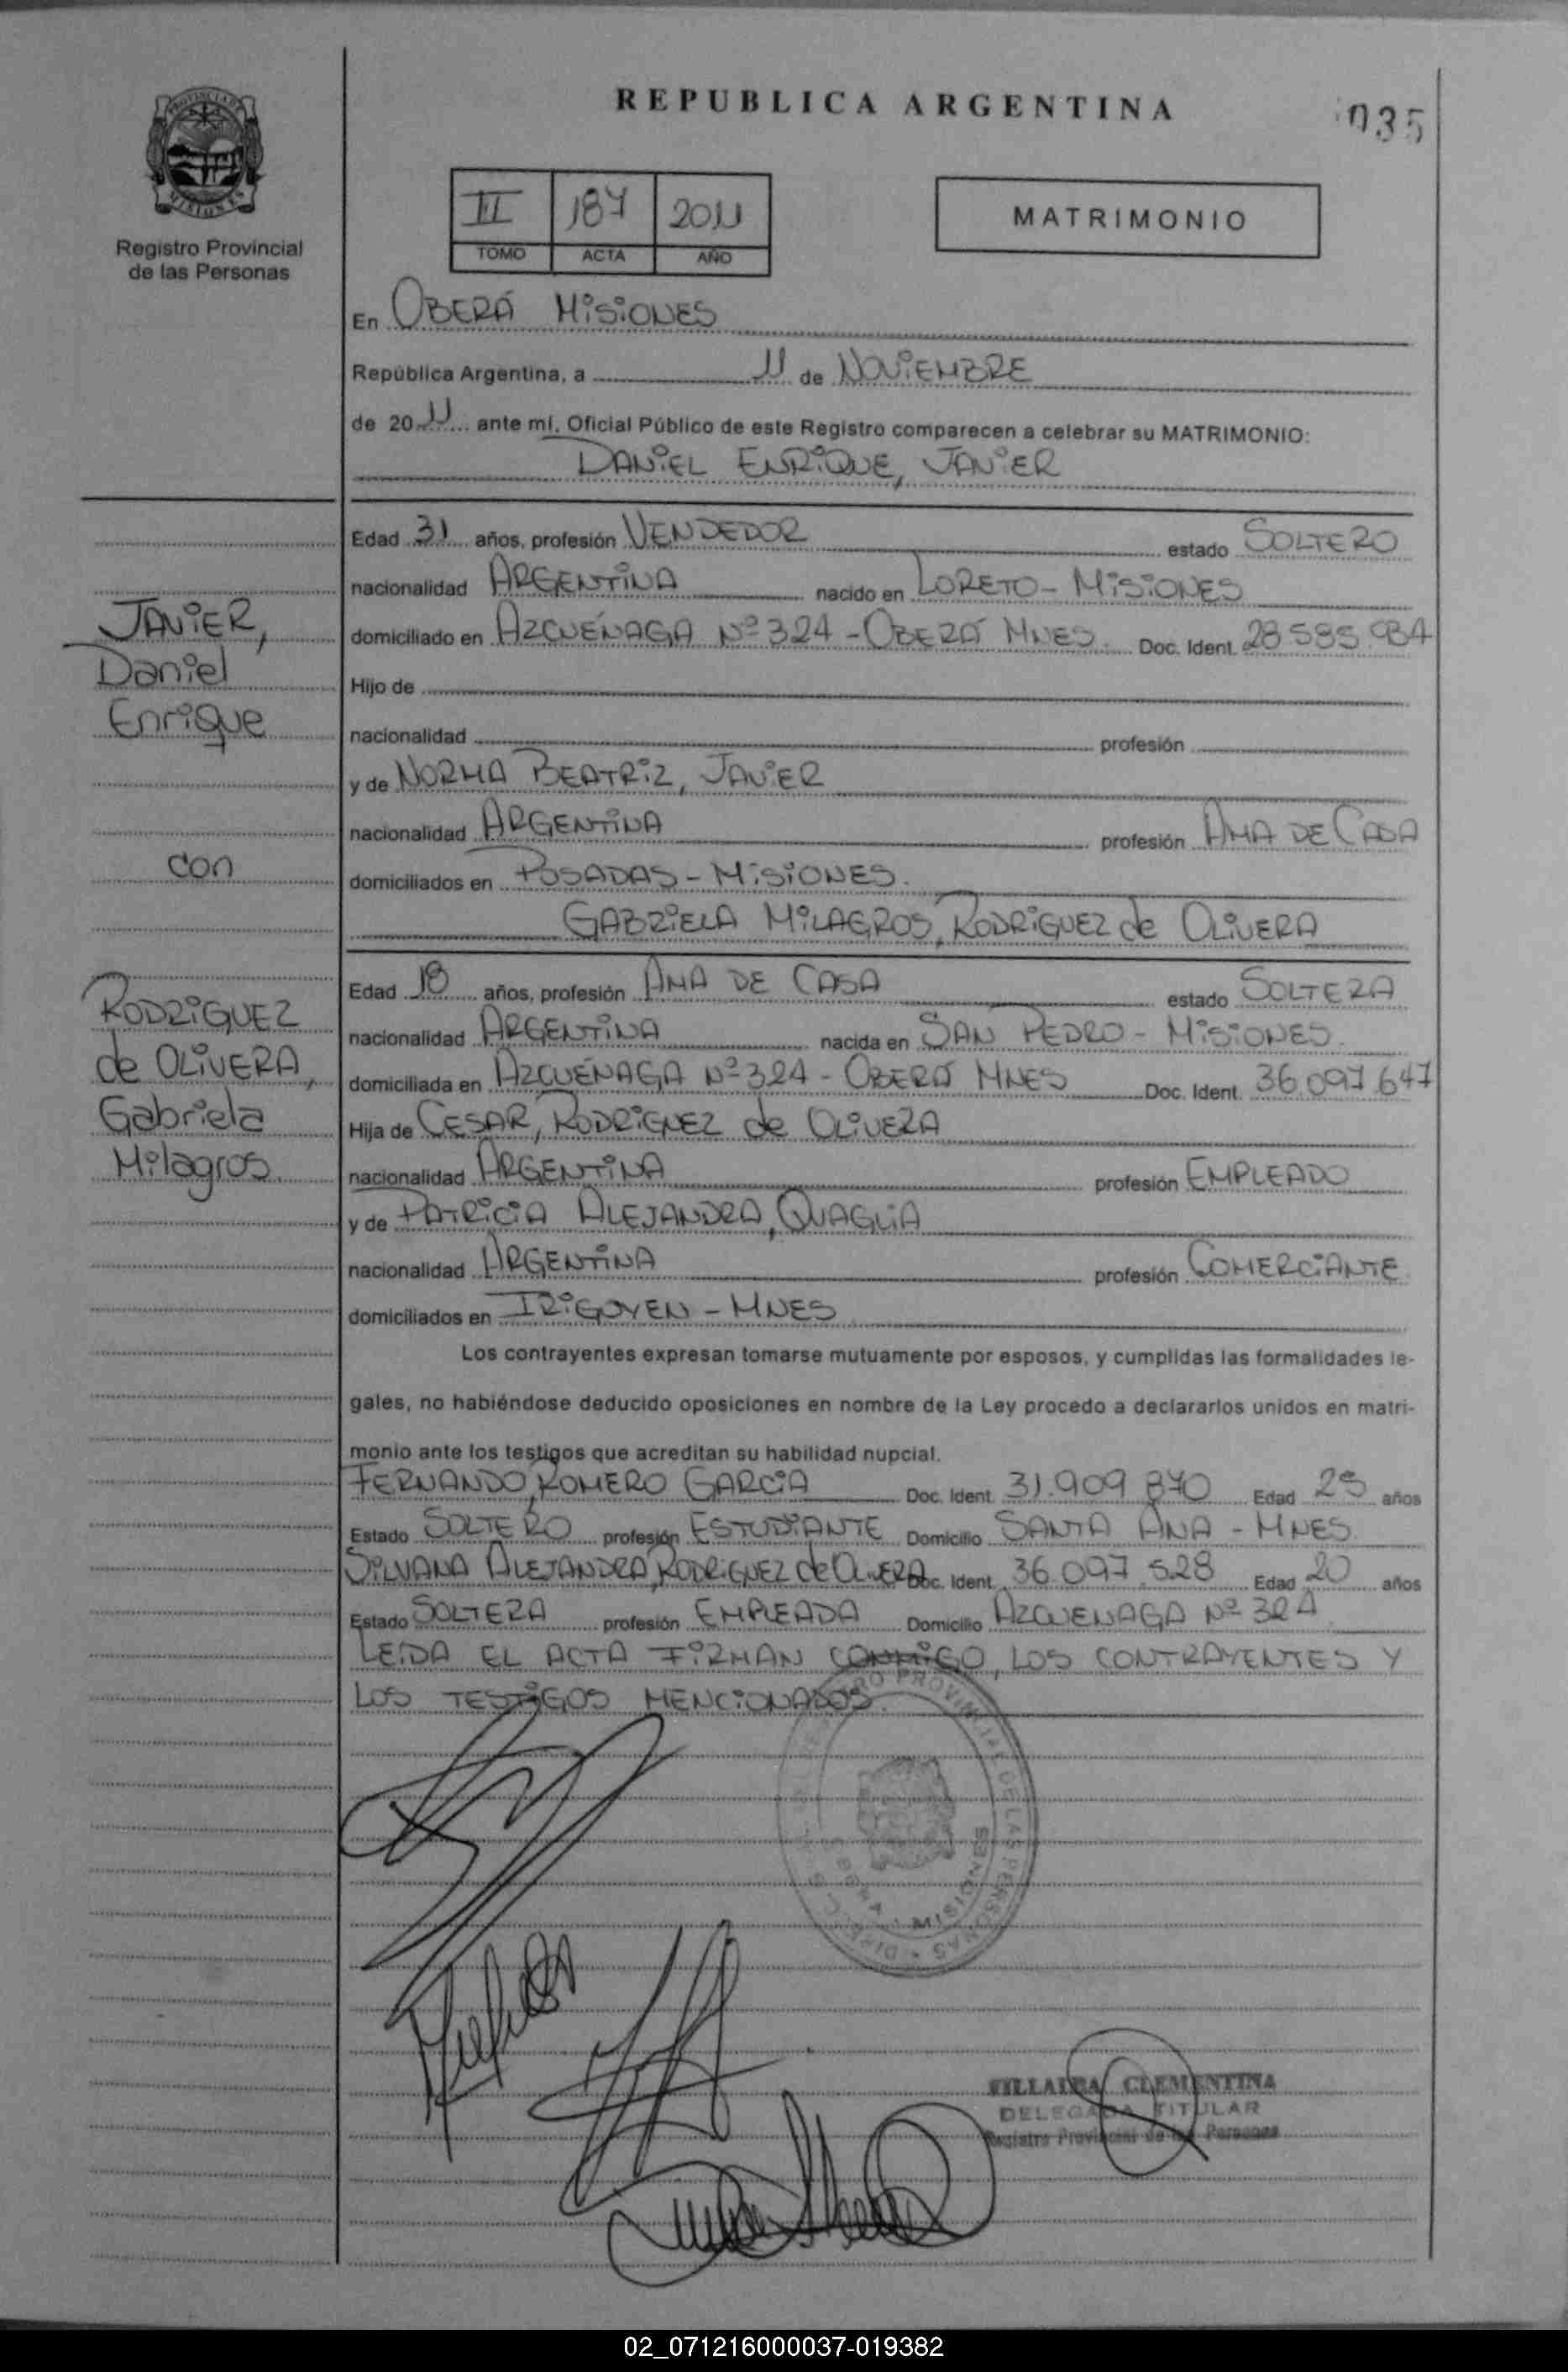 REPUBLICA ARGENTINA
035
PROVINCIA DE
MISIONES
Registro Provincial
de las Personas
II 187 2011
TOMO ACTA AÑO
MATRIMONIO
En OBERÁ MISIONES
República Argentina, a 11 de NOVIEMBRE
de 2011 ante mí, Oficial Público de este Registro comparecen a celebrar su MATRIMONIO:
DANIEL ENRIQUE, JAVIER
Edad 31 años, profesión VENDEDOR estado SOLTERO
nacionalidad ARGENTINA nacido en LORETO - MISIONES
domiciliado en AZCUÉNAGA Nº 324 - OBERÁ MNES. Doc. Ident. 28.585.984
Hijo de
nacionalidad profesión
y de NORMA BEATRIZ, JAVIER
nacionalidad ARGENTINA profesión AMA DE CASA
domiciliados en POSADAS - MISIONES.
GABRIELA MILAGROS, RODRIGUEZ de OLIVERA
JAVIER,
Daniel
Enrique
con
RODRIGUEZ
de OLIVERA,
Gabriela
Milagros.
Edad 18 años, profesión AMA DE CASA estado SOLTERA
nacionalidad ARGENTINA nacida en SAN PEDRO - MISIONES.
domiciliada en AZCUÉNAGA Nº 324 - OBERÁ MNES Doc. Ident. 36.097.647
Hija de CESAR, RODRIGUEZ de OLIVERA
nacionalidad ARGENTINA profesión EMPLEADO
y de PATRICIA ALEJANDRA, QUAGLIA
nacionalidad ARGENTINA profesión COMERCIANTE
domiciliados en IRIGOYEN - MNES
Los contrayentes expresan tomarse mutuamente por esposos, y cumplidas las formalidades le-
gales, no habiéndose deducido oposiciones en nombre de la Ley procedo a declararlos unidos en matri-
monio ante los testigos que acreditan su habilidad nupcial.
FERNANDO, ROMERO GARCIA Doc. Ident. 31.909.870 Edad 25 años
Estado SOLTERO profesión ESTUDIANTE Domicilio SANTA ANA - MNES.
SILVANA ALEJANDRA, RODRIGUEZ de OLIVERA Doc. Ident. 36.097.528 Edad 20 años
Estado SOLTERA profesión EMPLEADA Domicilio AZCUENAGA Nº 324
LEIDA EL ACTA FIRMAN CONMIGO, LOS CONTRAYENTES Y
LOS TESTIGOS MENCIONADOS.
PROVINCIAL DE LAS PERSONAS
MISIONES
VILLALBA CLEMENTINA
DELEGADA TITULAR
Registro Provincial de las Personas
02_071216000037-019382